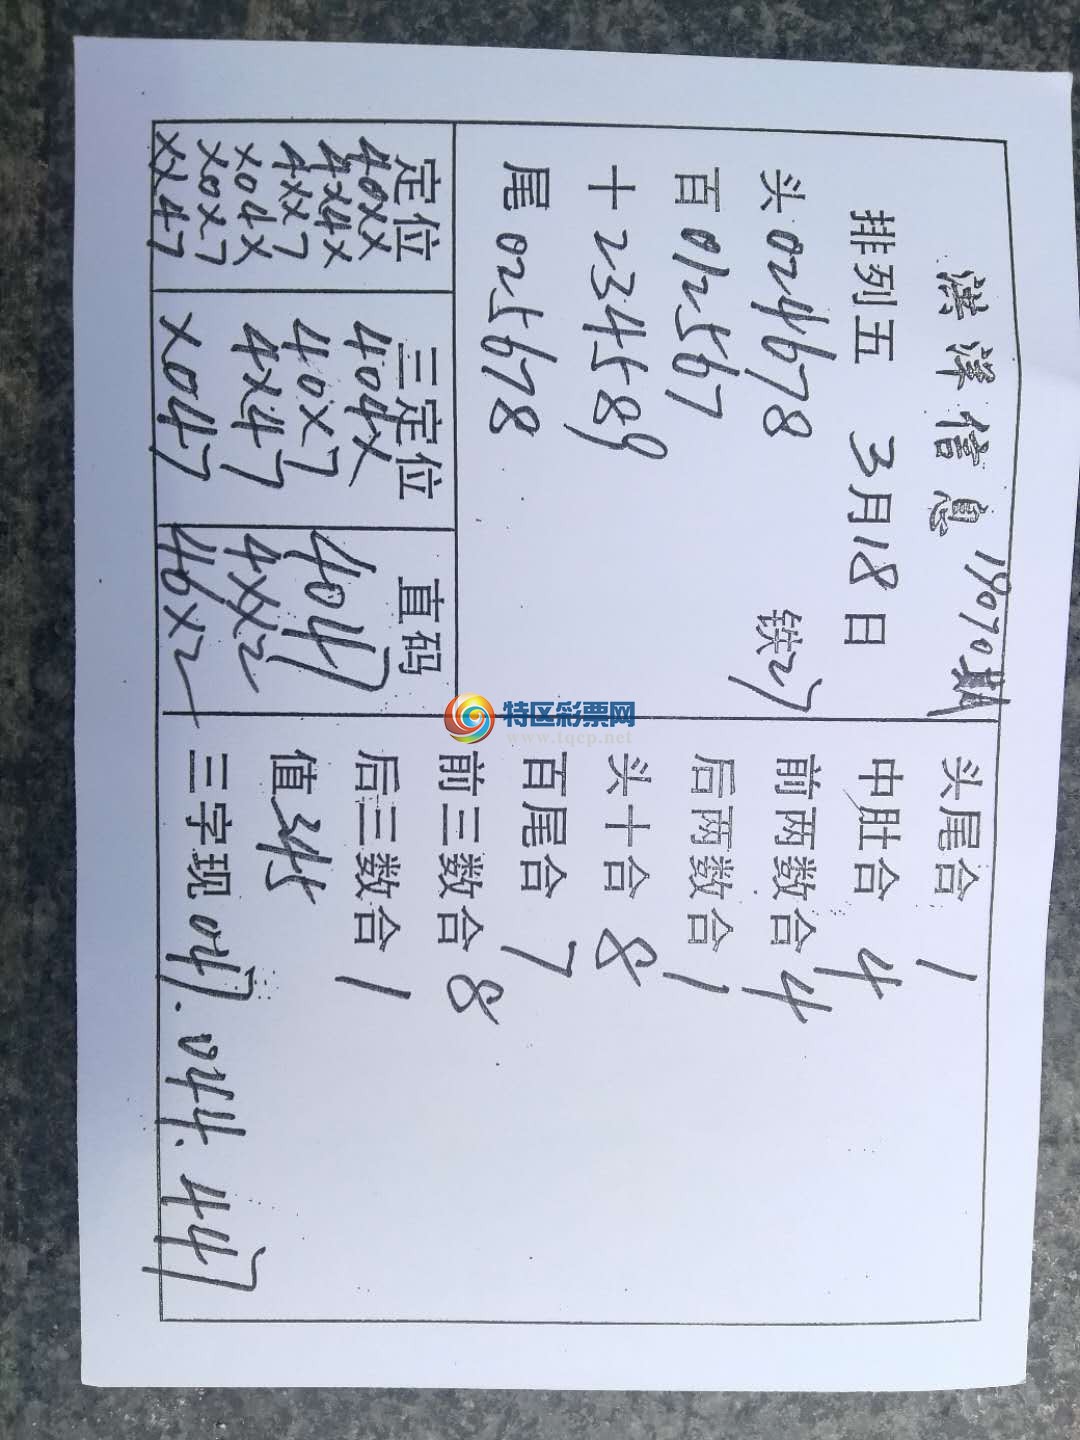 洪洋信息 19070期
排列五 3月18日
头024678 铁27
百012567
十234589
尾025678
定位
40xx
4x4x
4xx7
x04x
x0x7
xx47
三定位
404x
40x7
4x47
x047
直码
4047
4xx2
40x2
头尾合 1
中肚合 4
前两数合 4
后两数合 1
头十合 8
百尾合 7
前三数合 8
后三数合 1
三字现 047. 044. 447
特区彩票网
www.tqcp.net